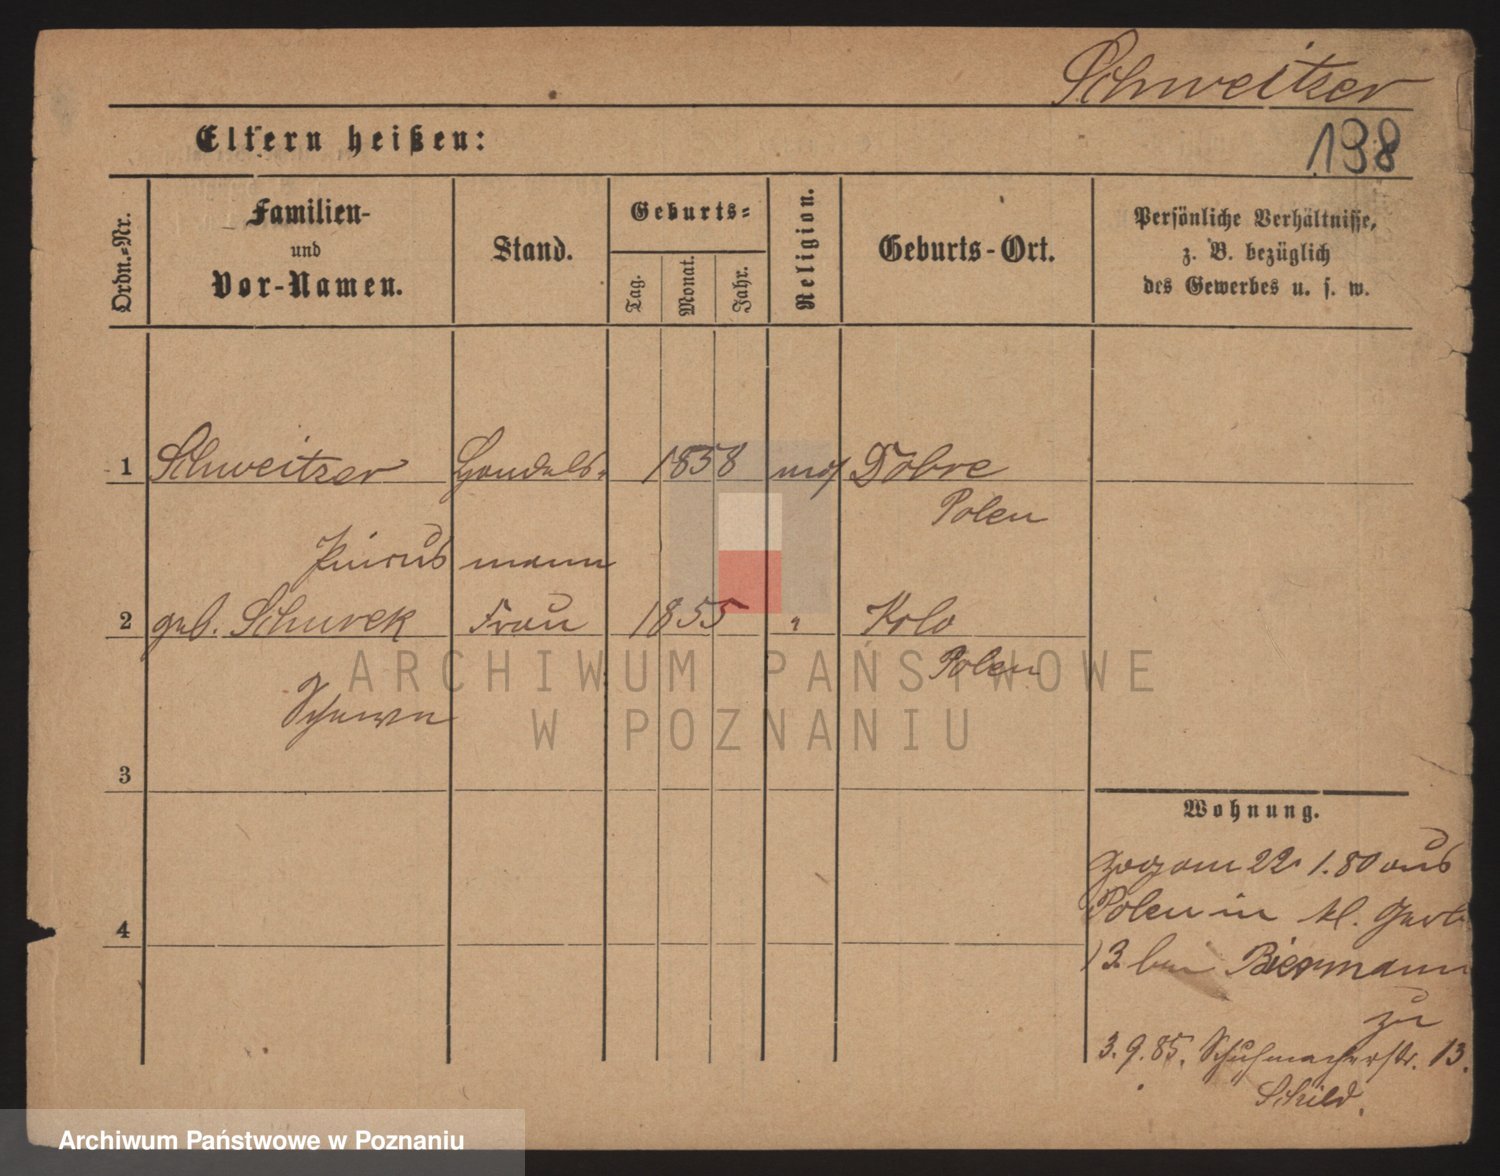 Schweitzer
Eltern heißen:
198
Ordn.-Nr.
Familien-
und
Vor-Namen.
Stand.
Geburts-
Tag.
Monat.
Jahr.
Religion.
Geburts-Ort.
Persönliche Verhältnisse,
z. B. bezüglich
des Gewerbes u. s. w.
1 Schweitzer Handels- 1858 mos Dobre
Polen
Pincus mann
2 geb. Schurek Frau 1855 " Kolo
Polen
ARCHIWUM PAŃSTWOWE
W POZNANIU
3
Wohnung.
Zog am 22. 1. 80 aus
Polen in kl. Gerb
13. bei Biermann
zu
4
3. 9. 85. Schuhmacherstr. 13.
Schild.
Archiwum Państwowe w Poznaniu